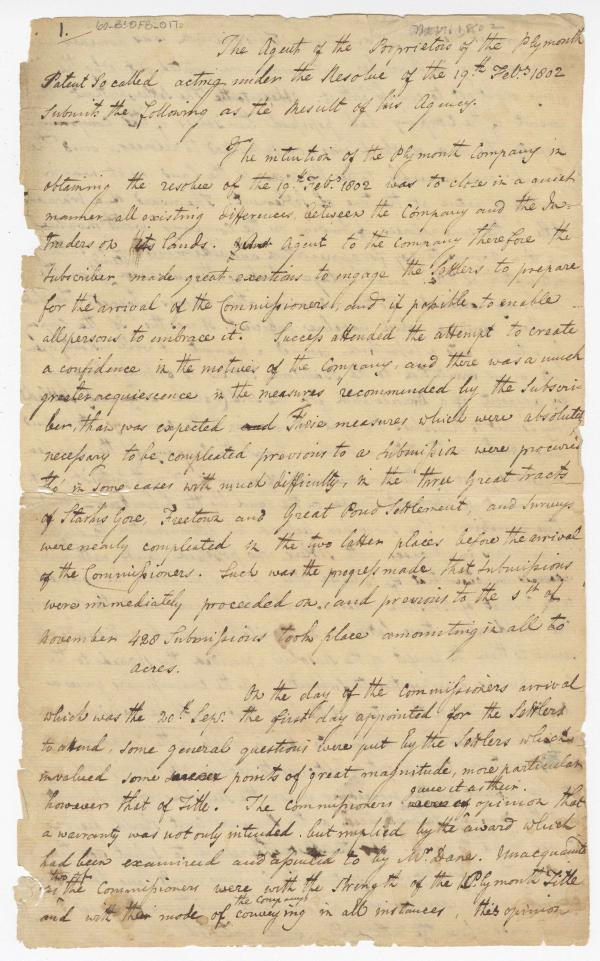 1.
The Agent of the Proprietors of the Plymouth
Patent so called acting under the Resolve of the 19th Feby 1802
Submits the following as the Result of his Agency.
The intention of the Plymouth Company in
obtaining the resolve of the 19th Feby 1802 was to close in a quiet
manner all existing differences between the Company and the In-
truders on its Lands. Agent to the company therefore the
Subscriber made great exertions to engage the Settlers to prepare
for the arrival of the Commissioners, and if possible to enable
all persons to embrace it. Success attended the attempt to create
a confidence in the motives of the Company, and there was a much
greater acquiescence in the measures recommended by the Subscri-
ber, than was expected and Those measures which were absolutely
necessary to be compleated previous to a Submission were procured
to in some cases with much difficulty, in the three Great tracts
of Starks Gore, Freetown and Great Pond Settlement, and Surveys
were nearly compleated in the two latter places before the arrival
of the Commissioners. Such was the progress made that Submissions
were immediately proceeded on, and previous to the 5th of
November 428 Submissions took place amounting in all to
acres.
On the day of the Commissioners arrival
which was the 20th Sepr. the first day appointed for the Settlers
to attend, some general questions were put by the Settlers which
involved some points of great magnitude, more particular
however that of Title. The Commissioners gave it as their opinion that
a warranty was not only intended but implied by the award which
had been examined and assented to by Mr. Dane. Unacquainted
as the Commissioners were with the Strength of the Plymouth Title
and with the mode of the Company's conveying in all instances, this opinion